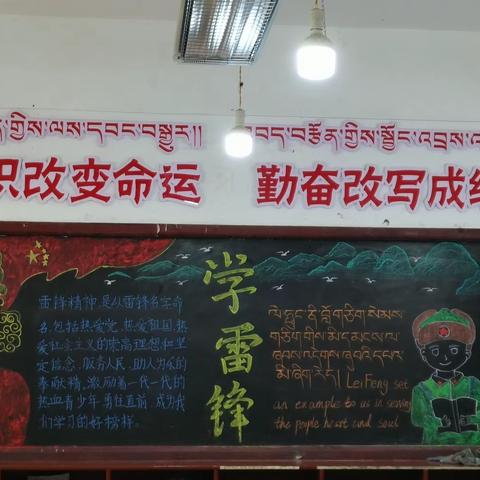 གྱིས་ལས་དབང་བསྒྱུར།།
འབད་བརྩོན་གྱིས་སྦྱོང་འབྲས་
识改变命运
勤奋改写成绩
雷锋精神，是以雷锋名字命
名，包括热爱党、热爱祖国、热
爱社会主义的崇高理想和坚
定信念，服务人民、助人为乐的
奉献精神，激励着一代一代的
热血青少年勇往直前，成为我
们学习的好榜样。
学雷锋
Lei Feng set
an example to us in serving
the people heart and soul